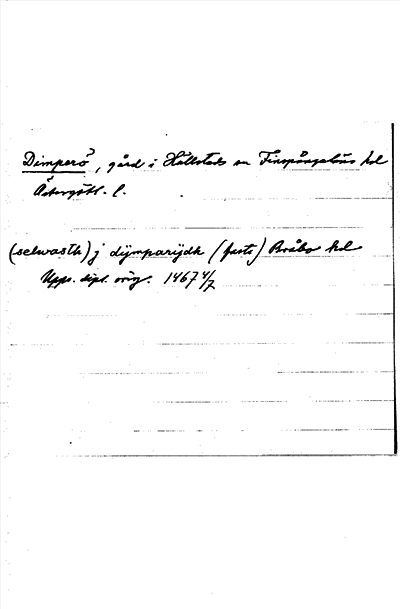 Dimperö, gård i Hällestads sn Finspångaläns hd
Östergötl. l.
(selwasth) j dijmparijdh (faste) Bråbo hd
Upps. dipl. orig. 1467 4/7